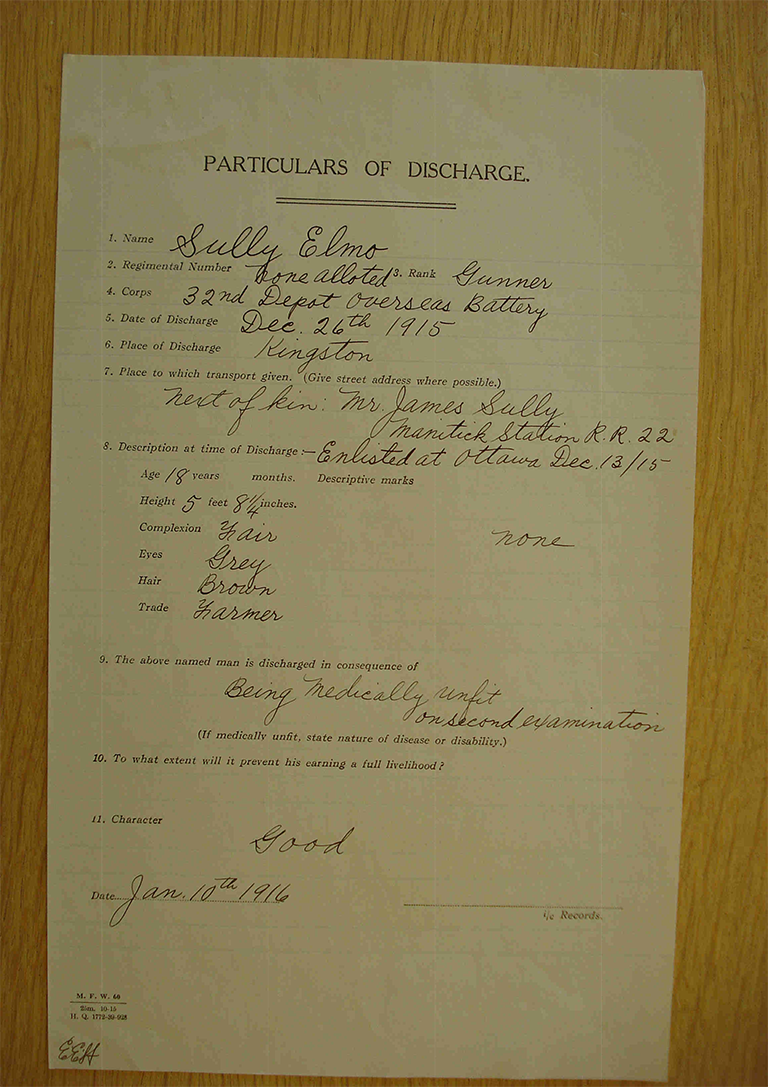 PARTICULARS OF DISCHARGE.
1. Name Sully Elmo
2. Regimental Number None alloted 3. Rank Gunner
4. Corps 32nd Depot Overseas Battery
5. Date of Discharge Dec. 26th 1915
6. Place of Discharge Kingston
7. Place to which transport given. (Give street address where possible.)
Next of kin: Mr. James Sully
Manitick Station R.R. 22
8. Description at time of Discharge:— Enlisted at Ottawa Dec. 13/15
Age 18 years months. Descriptive marks
Height 5 feet 8 1/4 inches.
Complexion Fair none
Eyes Grey
Hair Brown
Trade Farmer
9. The above named man is discharged in consequence of
Being Medically unfit
on second examination
(If medically unfit, state nature of disease or disability.)
10. To what extent will it prevent his earning a full livelihood?
11. Character
Good
Date Jan. 10th 1916
i/c Records.
M. F. W. 60
25m. 10-15
H. Q. 1772-39-928
EEH